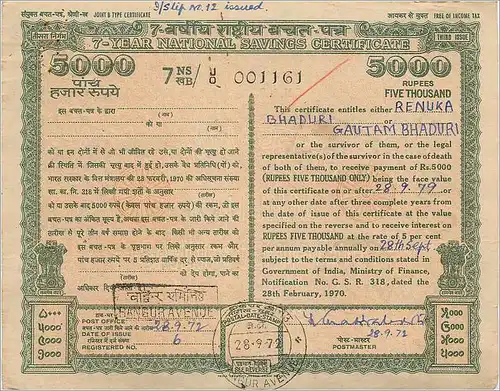 I/Slip No. 12 issued.
संयुक्त बचत-पत्र, बी-श्रेणी JOINT B TYPE CERTIFICATE
आयकर से मुक्त FREE OF INCOME TAX
तीसरा निर्गम
7-वर्षीय राष्ट्रीय बचत-पत्र
THIRD ISSUE
7-YEAR NATIONAL SAVINGS CERTIFICATE
5000
7 NS/खB/ 001161
5000
पांच
हजार रुपये
RUPEES
FIVE THOUSAND
इस बचत-पत्र के द्वारा
को या
This certificate entitles either RENUKA
BHADURI or
GAUTAM BHADURI
को या इन दोनों में से जो भी जीवित हो उसे, या दोनों की मृत्यु हो जाने
की स्थिति में जिसकी मृत्यु बाद में हुई हो, उसके वैध प्रतिनिधि (यों) को,
भारत सरकार के वित्त मंत्रालय की 28 फरवरी, 1970 की अधिसूचना संख्या
को उसके बाद 5000 रुपये (केवल पांच हजार रुपये) की रकम, जो इस
बचत-पत्र का अंकित मूल्य है, अथवा बचत-पत्र के जारी किये जाने की
तारीख से पूरे तीन वर्ष समाप्त होने के बाद किसी भी अन्य तारीख को
इस बचत-पत्र के पृष्ठभाग पर लिखे अनुसार रकम और
पांच हजार रुपये पर 5 प्रतिशत वार्षिक दर से ब्याज, जो प्रतिवर्ष
को देय होगा, पाने का
अधिकार दिया जाता है।
or the survivor of them, or the legal
representative(s) of the survivor in the case of death
of both of them, to receive payment of Rs.5000
(RUPEES FIVE THOUSAND ONLY) being the face
value of this certificate on or after 28.9.79 or
at any other date after three complete years from
the date of issue of this certificate at the value
specified on the reverse and to receive interest on
RUPEES FIVE THOUSAND at the rate of 5 per
cent per annum payable annually on 28th Sept
subject to the terms and conditions stated in
Government of India, Ministry of Finance,
Notification No. G. S. R. 318, dated the
28th February, 1970.
BANGUR AVENUE
डाक-घर
POST OFFICE
28.9.72
REGISTERED NO. 6
28-9-72
BANGUR AVENUE
28.9.72
पोस्ट-मास्टर
POSTMASTER
५०००